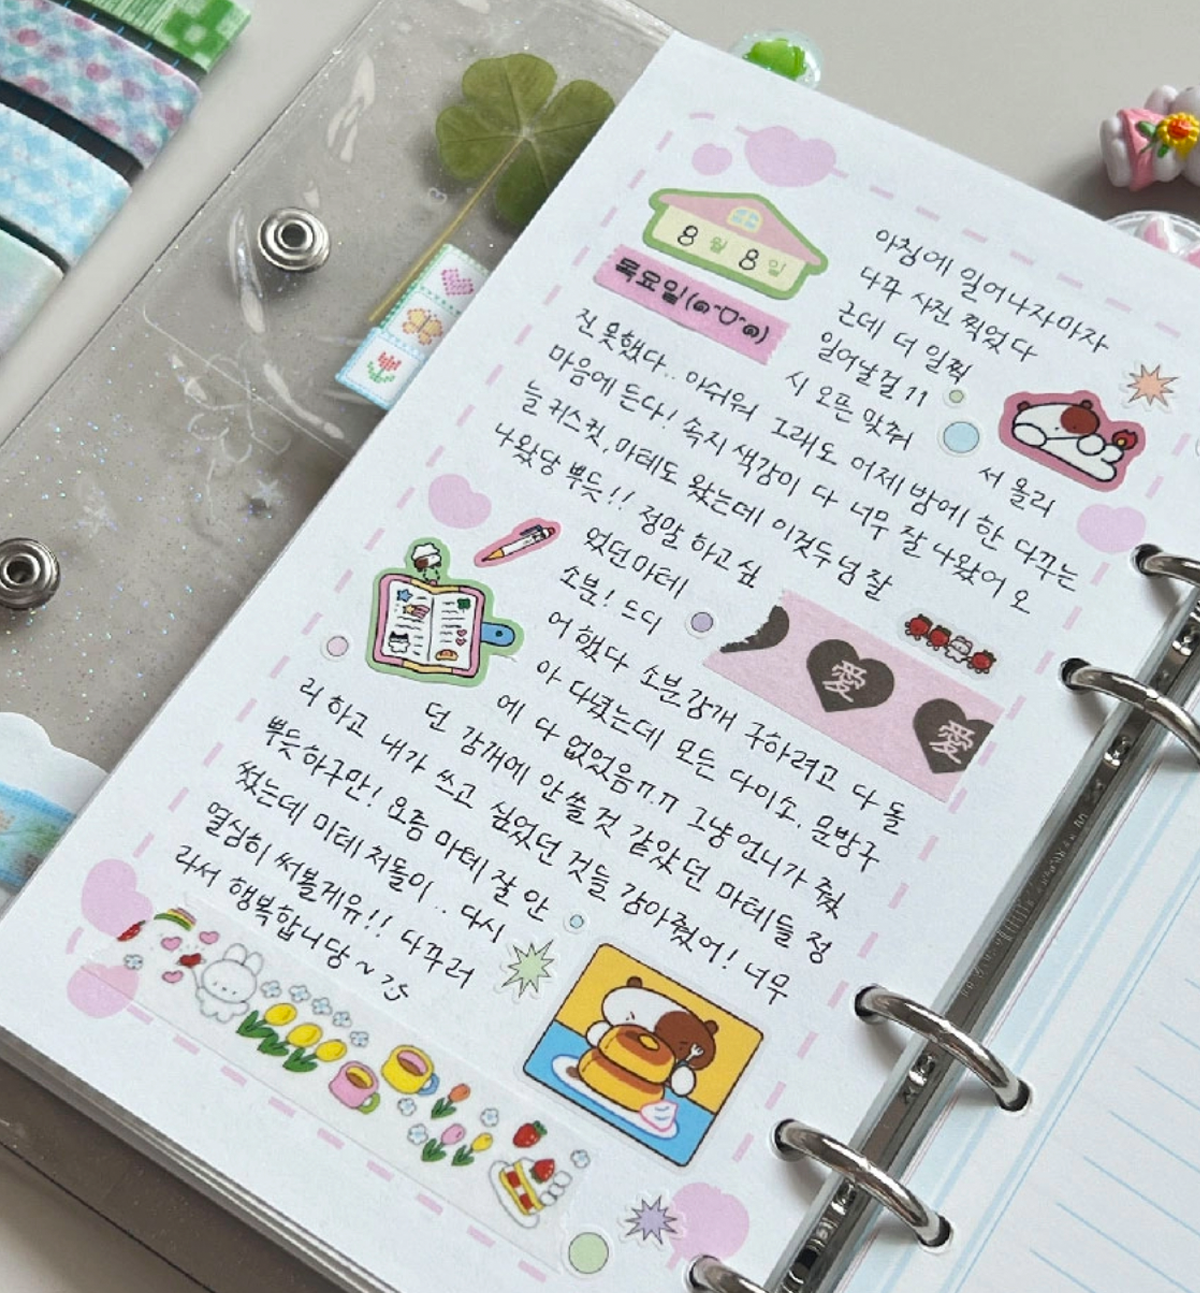 8월 8일
목요일(๑ᵔ♡ᵔ๑)
아침에 일어나자마자
다꾸 사진 찍었다
근데 더 일찍
일어날걸 11
시 오픈 맞춰
서 올리
진 못했다.. 아쉬워 그래도 어제 밤에 한 다꾸는
마음에 든다! 속지 색감이 다 너무 잘 나왔어 오
늘 키스컷,마테도 왔는데 이것두 넘 잘
나왔당 뿌듯!! 정말 하고싶
었던 마테
소분! 드디
어 했다 소분감개 구하려고 다 돌
아 다녔는데 모든 다이소. 문방구
에 다 없었음ㅠ.ㅠ 그냥 언니가 줬
던 감개에 안 쓸 것 같았던 마테들 정
리 하고 내가 쓰고 싶었던 것들 감아줬어! 너무
뿌듯하구만! 요즘 마테 잘 안
썼는데 미테 처돌이.. 다시
열심히 써볼게유!! 다꾸러
라서 행복합니당~
愛
愛